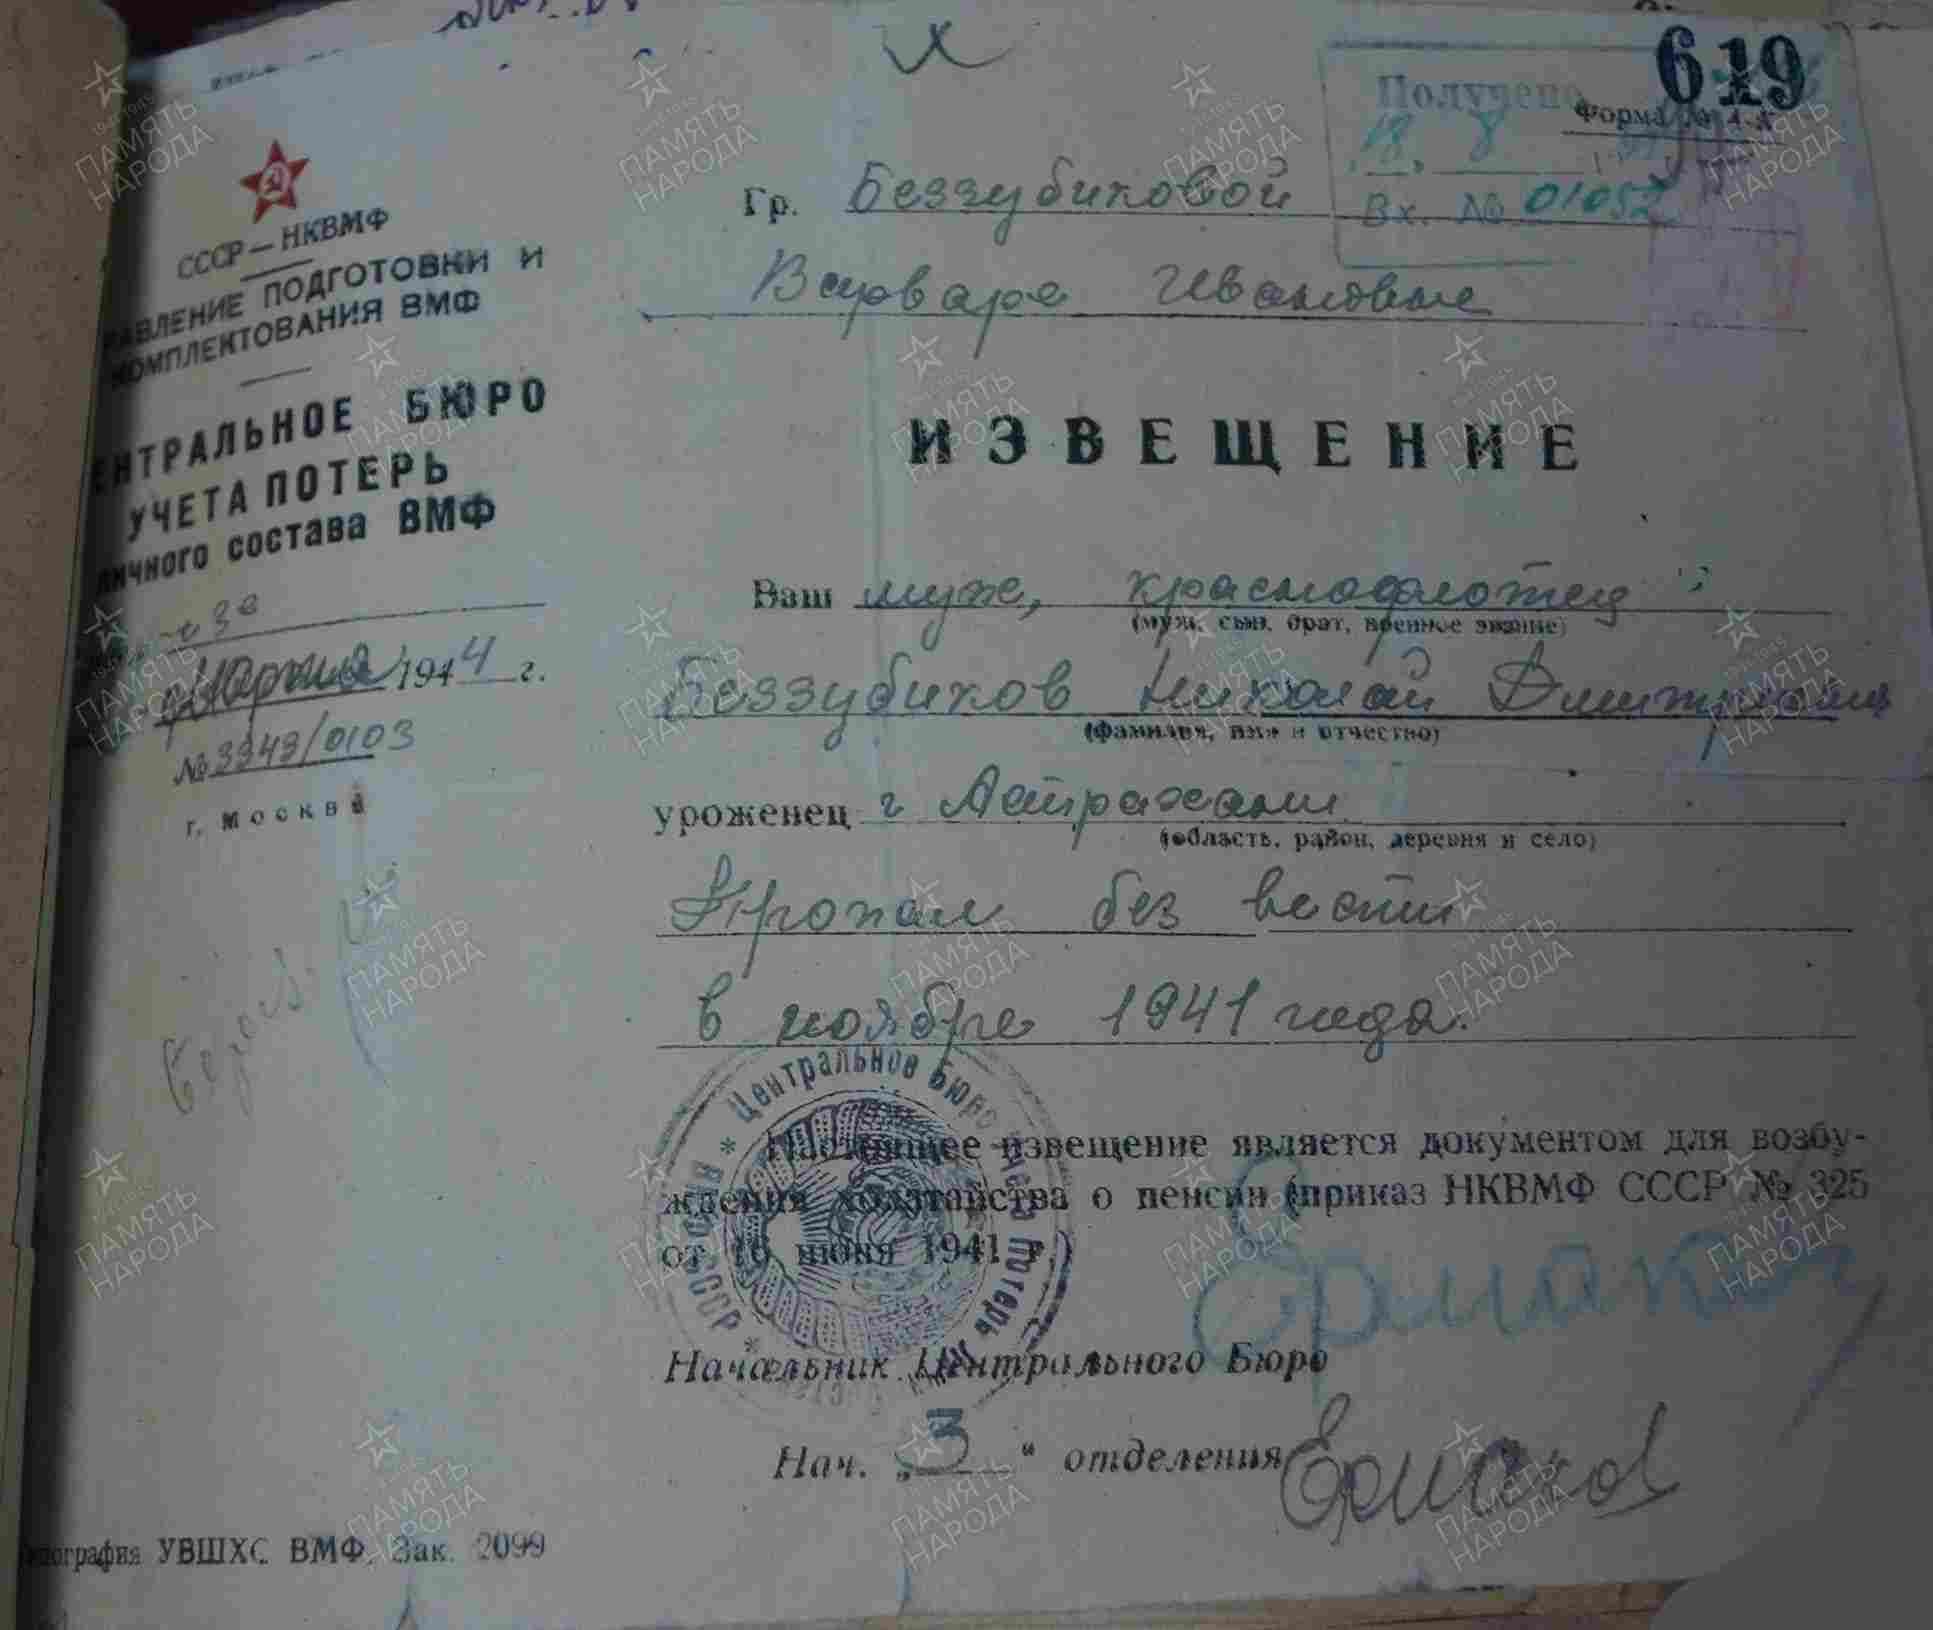 619
Получено
Форма № 4-а
18 8
Вх. № 01052
СССР — НКВМФ
АВЛЕНИЕ ПОДГОТОВКИ И
КОМПЛЕКТОВАНИЯ ВМФ
ЕНТРАЛЬНОЕ БЮРО
УЧЕТА ПОТЕРЬ
личного состава ВМФ
марта 1944 г.
№ 3343/0103
г. Москва
Гр. Беззубиковой
Варваре Ивановне
ИЗВЕЩЕНИЕ
Ваш муж, краснофлотец
(муж, сын, брат, военное звание)
Беззубиков Николай Дмитриевич
(фамилия, имя и отчество)
уроженец г Астрахани
(область, район, деревня и село)
Пропал без вести
в ноябре 1941 года.
Настоящее извещение является документом для возбу-
ждения ходатайства о пенсии (приказ НКВМФ СССР № 325
от 16 июня 1941 г.)
Начальник Центрального Бюро
Ермаков
Нач. „3“ отделения
Ермаков
Центральное Бюро Учета Потерь
СССР
ипография УВШХС ВМФ. Зак. 2099
ПАМЯТЬ НАРОДА